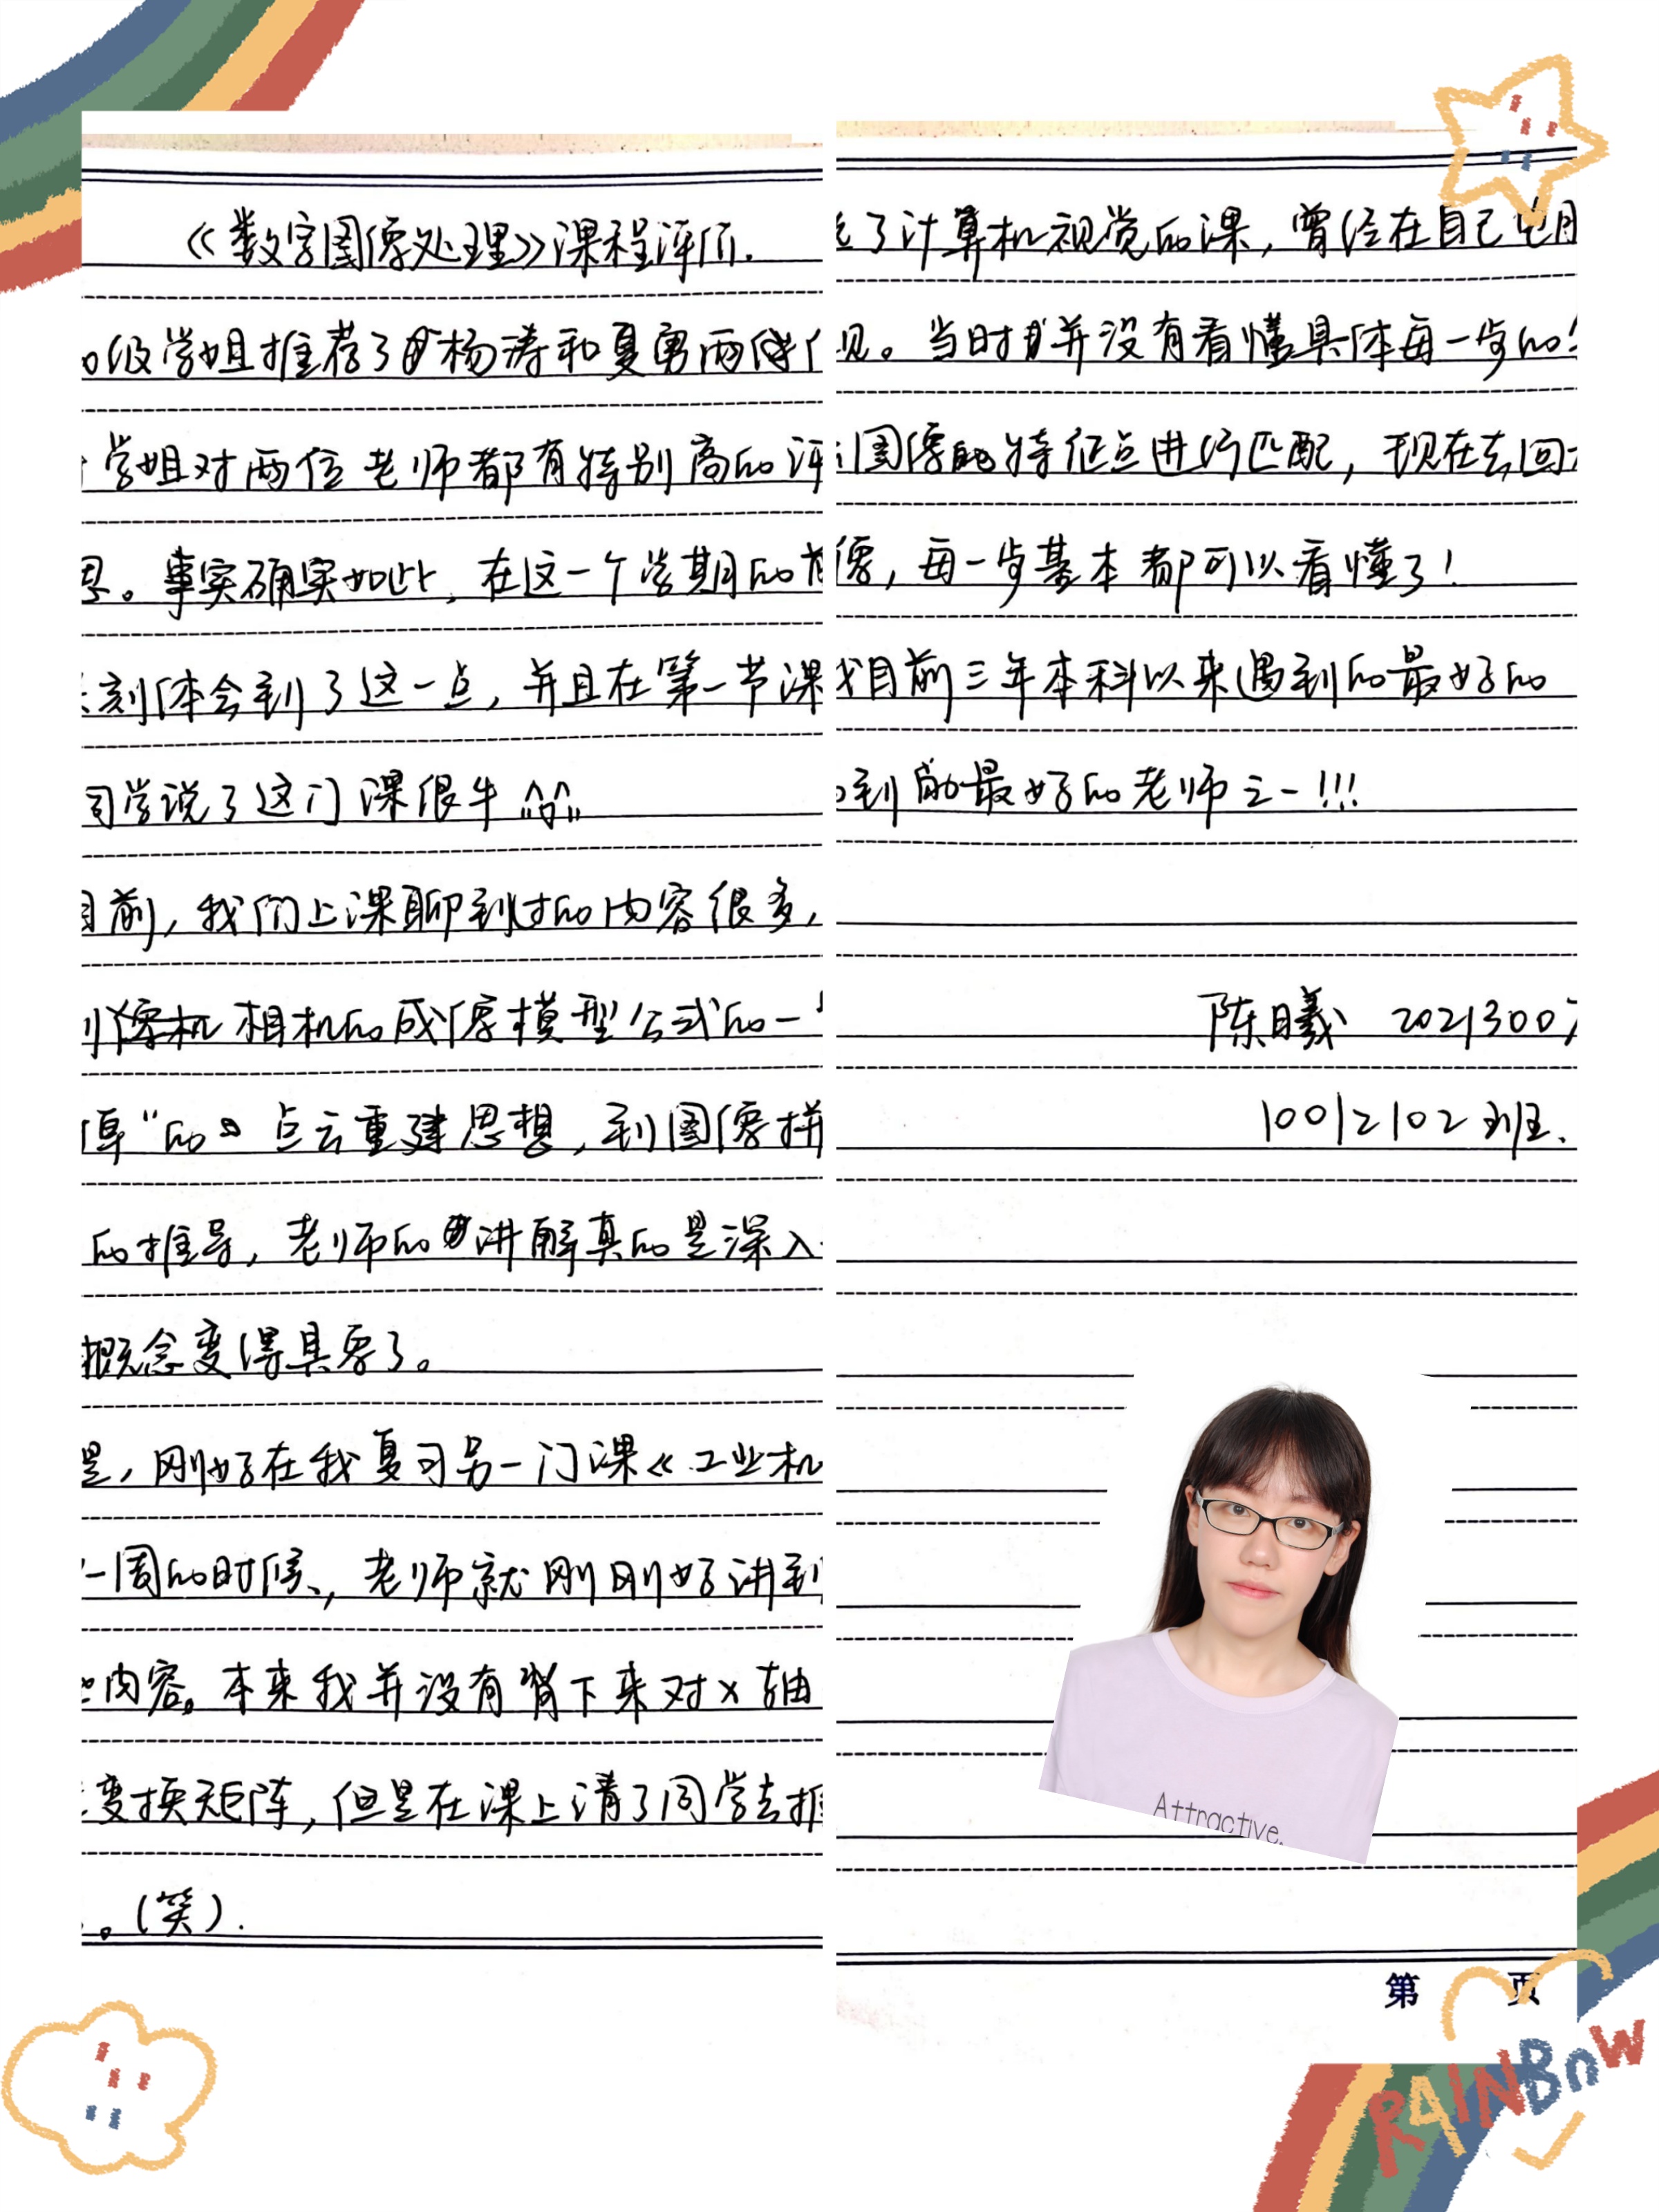 《数字图像处理》课程评价.
级学姐推荐了杨涛和夏勇两
学姐对两位老师都有特别高的评
思。事实确实如此，在这一个学期的
刻体会到了这一点，并且在第一节课
同学说了这门课很牛
目前，我们上课聊到过的内容很多，
相机的成像模型公式的一
”的点云重建思想，到图像拼
的推导，老师的讲解真的是深入
概念变得具象了。
是，刚好在我复习另一门课《工业机
一周的时候，老师就刚刚好讲到
内容。本来我并没有背下来对x轴
变换矩阵，但是在课上请了同学去推
。(笑).
了计算机视觉的课，曾经在自己电
现。当时并没有看懂具体每一步的
图像的特征点进行匹配，现在去回
像，每一步基本都可以看懂了！
我目前三年本科以来遇到的最好的
到的最好的老师之一!!!
陈曦 2021300
10012102班.
Attractive.
第 页
RAINBOW